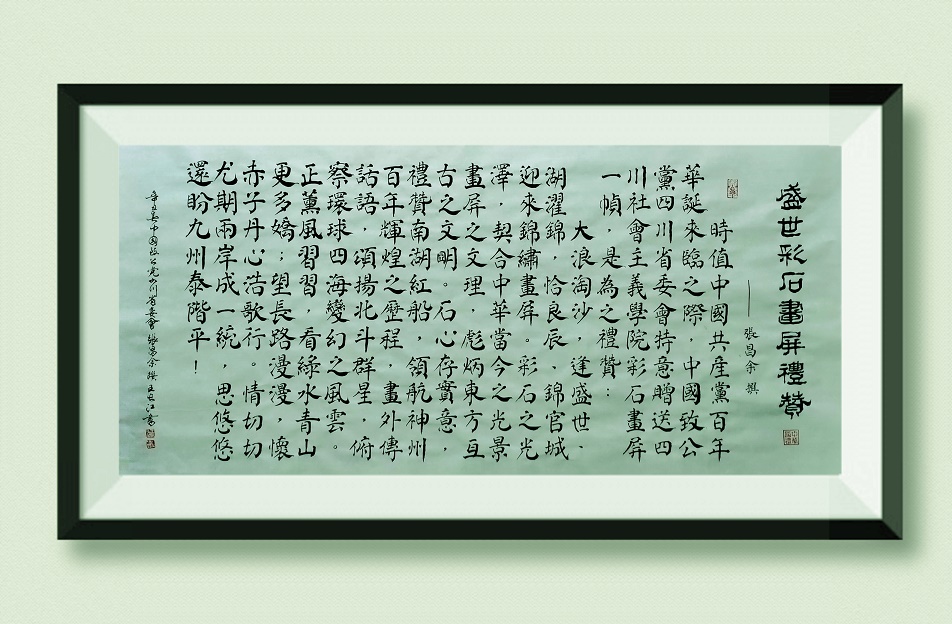 盛世彩石畫屏禮贊
——張昌余 撰
時值中國共産黨百年
華誕來臨之際，中國致公
黨四川省委會持意贈送四
川社會主義學院彩石畫屏
一幀，是為之禮贊：
大浪淘沙，逢盛世、
湖濯錦，恰良辰、錦官城
迎來錦繡畫屏。彩石之光
澤，契合中華當今之光景
畫屏之文理，彪炳東方亙
古之文明。石心存實意，
禮贊南湖紅船，領航神州
百年輝煌之歷程，畫外傳
話語，頌揚北斗群星，俯
察環球四海變幻之風雲。
正薰風習習，看綠水青山
更多嬌；望長路漫漫，懷
赤子丹心浩歌行。情切切
尤期兩岸成一統，思悠悠
還盼九州泰階平！
辛丑春中國致公党四川省委會 張昌余撰